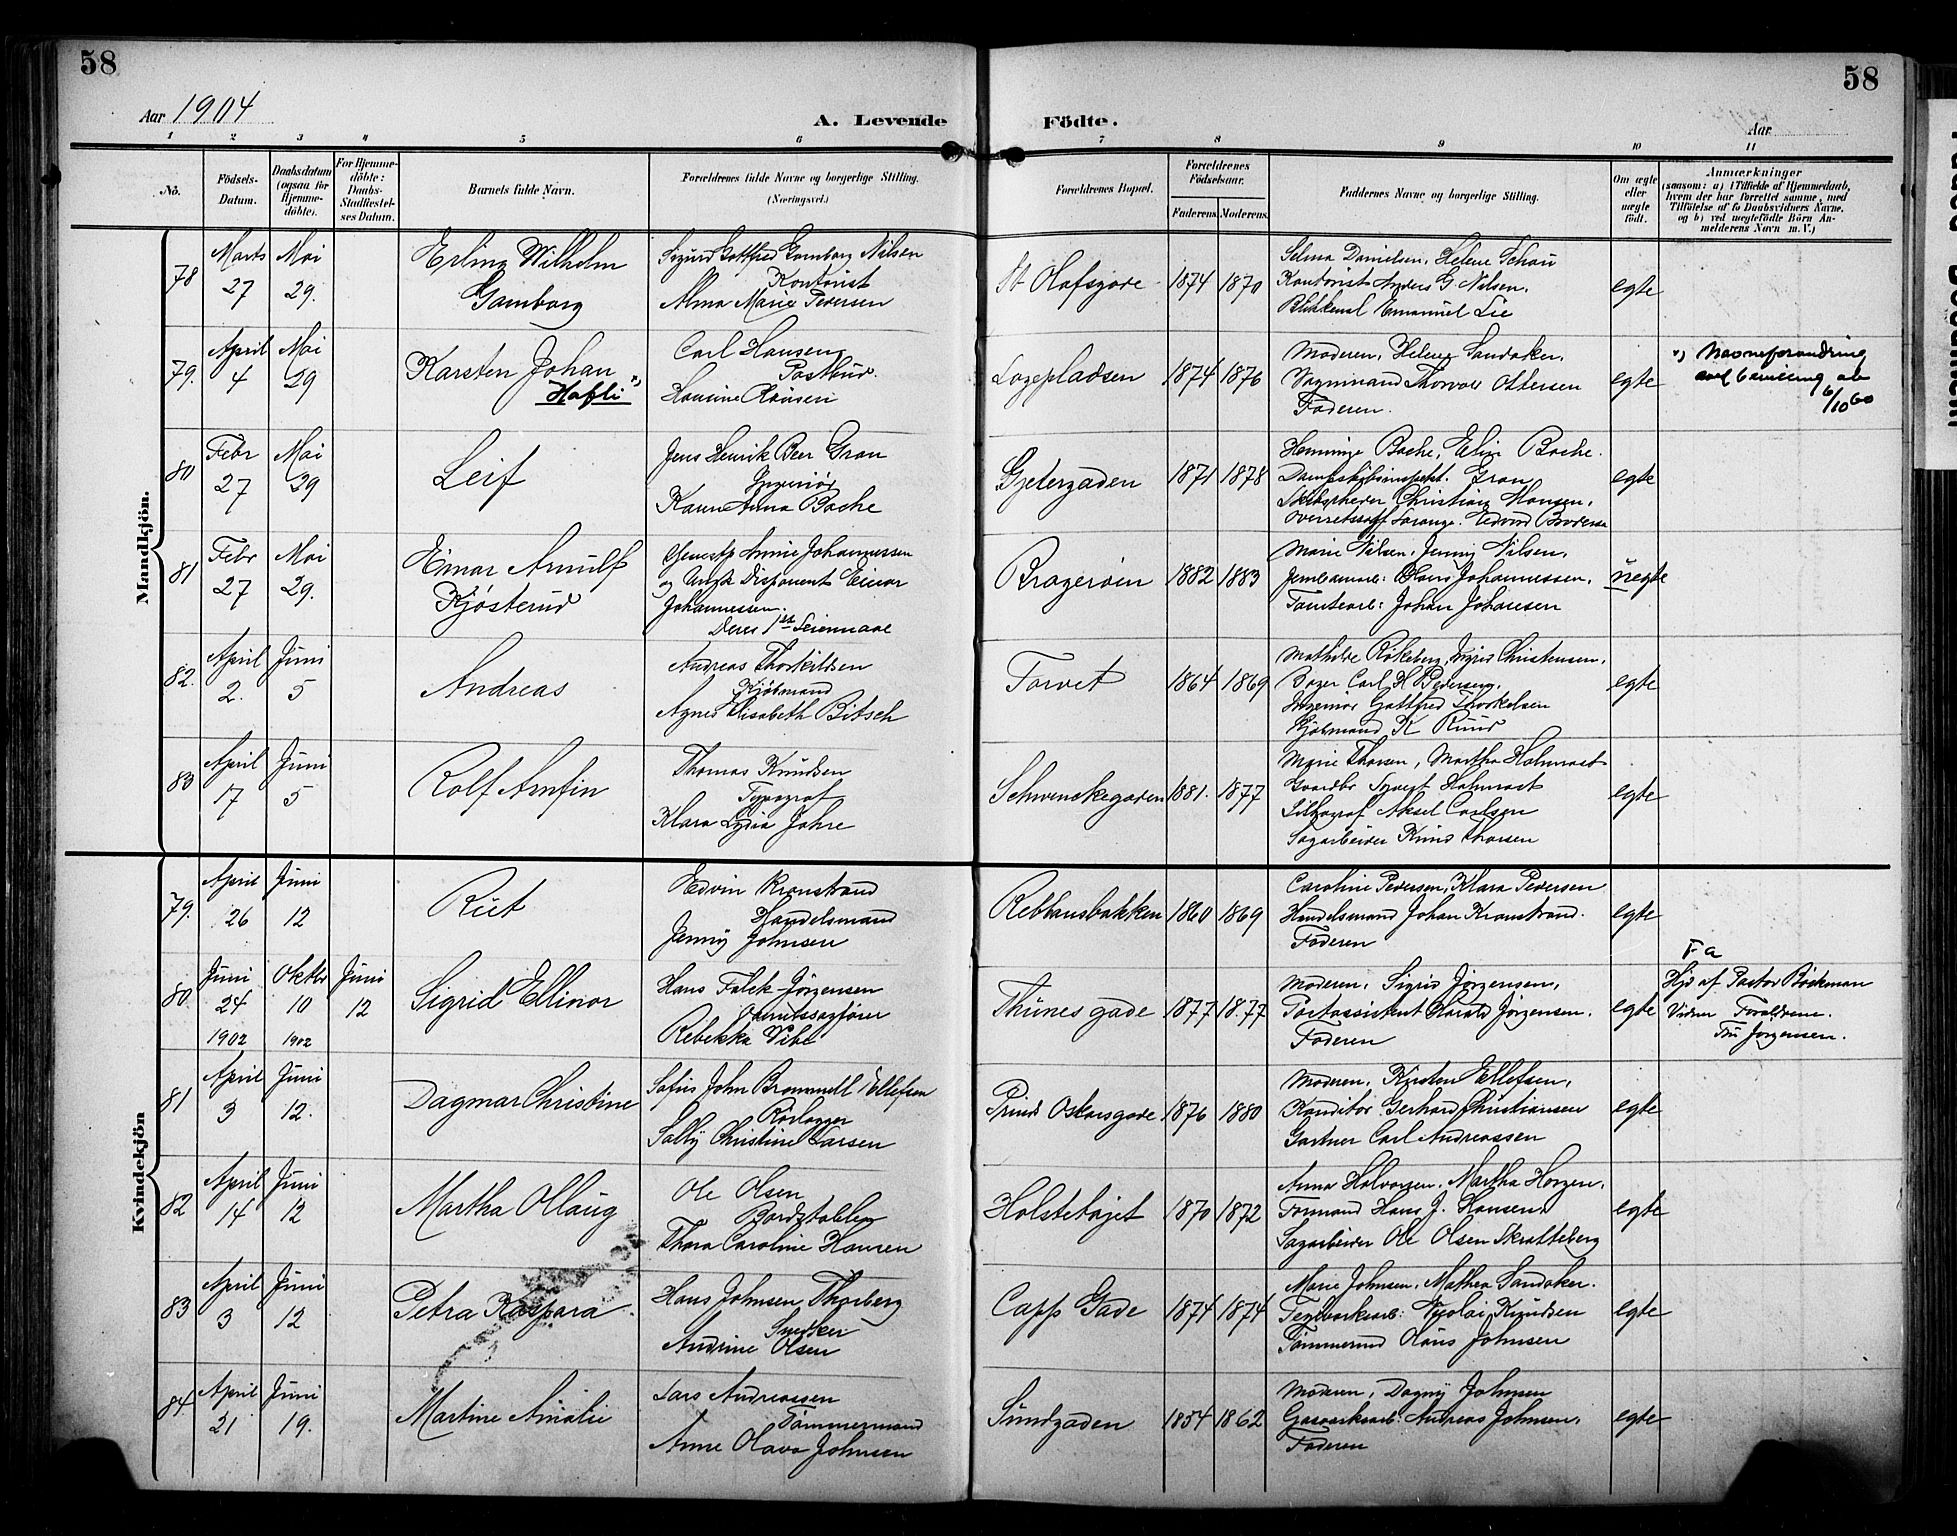 58
58
Aar 1904
A. Levende
Födte.
Aar
1 2 3 4 5 6 7 8 9 10 11
No.
Födsels-Datum.
Daabsdatum (ogsaa for Hjemme-döbte).
For Hjemme-döbte: Daabs-Stadfæstel-ses Datum.
Barnets fulde Navn.
Forældrenes fulde Navne og borgerlige Stilling.
(Næringsvei.)
Forældrenes Bopæl.
Forældrenes Födselsaar.
Faderens. Moderens.
Faddernes Navne og borgerlige Stilling.
Om ægte eller uægte födt.
Anmærkninger
(saasom: a) i Tilfælde af Hjemmedaab,
hvem der har forrettet samme, med
Tilföielse af to Daabsvidners Navne,
og b) ved uægtefödte Börn An-
melderens Navn m. V.)
Mandkjön.
78
Marts 27
Mai 29.
Erling Wilhelm
Gamborg
Sigurd Gottfred Gamborg Nilsen
Kontorist
Alma Marie Pedersen
St Olafsgade
1874 1870
Selma Danielsen, Helene Schou
Kontorist Anders G. Nilsen,
Blikkensl Emanuel Lie
egte
79.
April 4
Mai 29
Karsten Johan
Hafli
Carl Hansen
Postbud.
Hansine Hansen
Løgepladsen
1874 1876
Moderen, Helene Sandaker,
Vognmand Thorvald Ottersen
Faderen.
egte
Navneforandring
6/10 60
80
Febr 27
Mai 29
Leif
Jens Henrik Beer Gran
Ingeniør
Anna Bache
Gjetergaden
1871 1878
Henninge Bache, Elise Bache.
Dampskibsinspekt. Gran,
Skibsrheder Christian Hansen,
egte
81
Febr 27
Mai 29.
Einar Arnulf
Kjøsterud
Johannessen
og Ungk Disponent Einar
Johannessen.
Deres 1ste Leiermaal
Bragerøen
1882 1883
Marie Nilsen, Jenny Nilsen,
Jernbanearb: Hans Johannessen,
Tomtearb: Johan Johansen
uegte
82.
April 2.
Juni 5
Andreas
Andreas Thorkildsen
Kjøbmand
Agnes Elisabeth Bitsch
Torvet
1864 1869
Mathilde Røkeberg, Sigrid Christensen,
Bager Carl H Pedersen,
Ingeniør Gottfred Thorkelsen
Kjøbmand K Ruud
egte
83
April 17
Juni 5
Rolf Arnfin
Thomas Knudsen
Typograf
Klara Lydia Johre
Schwenckegaden
1881. 1877
Marie Thorsen, Martha Holmvast
Gaardbr Syvert Holmvast
Lithograf Aksel Carlsen
Sagarbeider Knud Thorsen
egte
Kvindekjön
79.
April 26
Juni 12
Rut
Edvin Kronstrand
Handelsmand
Jenny Johnsen
Rebbansbakken
1860 1869
Caroline Pedersen, Klara Pedersen
Handelsmand Johan Kronstrand.
Faderen
egte
80
Juni 24 1902
Oktbr 10 1902
Juni 12
Sigrid Ellinor
Hans Falck-Jørgensen
Overretssagfører
Rebekka Vibe
Thunes gade
1877 1877
Moderen, Sigrid Jørgensen,
Postassistent Harald Jørgensen.
Faderen
egte
Fa
Hjd af Pastor Böckman
Vidner Forældrene.
Fru Jørgensen.
81
April 3
Juni 12.
Dagmar Christine
Sofus John Brommell Ellefsen
Rørlægger
Sally Christine Larsen
Prinds Oskarsgade
1876 1880
Moderen, Kirsten Ellefsen,
Konditor Gerhard Christiansen
Gartner Carl Andreassen
egte
82
April 14
Juni 12
Martha Ollaug
Ole Olsen
Bordstabler
Thora Caroline Hansen
Holstehøjet
1870 1872
Anna Halvorsen, Martha Horgen,
Formand Hans J. Hansen,
Sagarbeider Ole Olsen Skratteberg
egte
83
April 3
Juni 12
Petra Kaspara.
Hans Johnsen Thorberg
Snedker
Andrine Olsen
Capps Gade
1874 1874
Marie Johnsen, Mathea Sandaker.
Teglverksarb: Nicolai Knudsen
Tømmermd Hans Johnsen
egte
84.
April 21
Juni 19.
Martine Amalie
Lars Andreassen
Tømmermand
Anne Olava Johnsen
Sundgaden
1854 1862
Moderen, Dagny Johnsen
Gasværksarb: Andreas Johnsen,
Faderen
egte